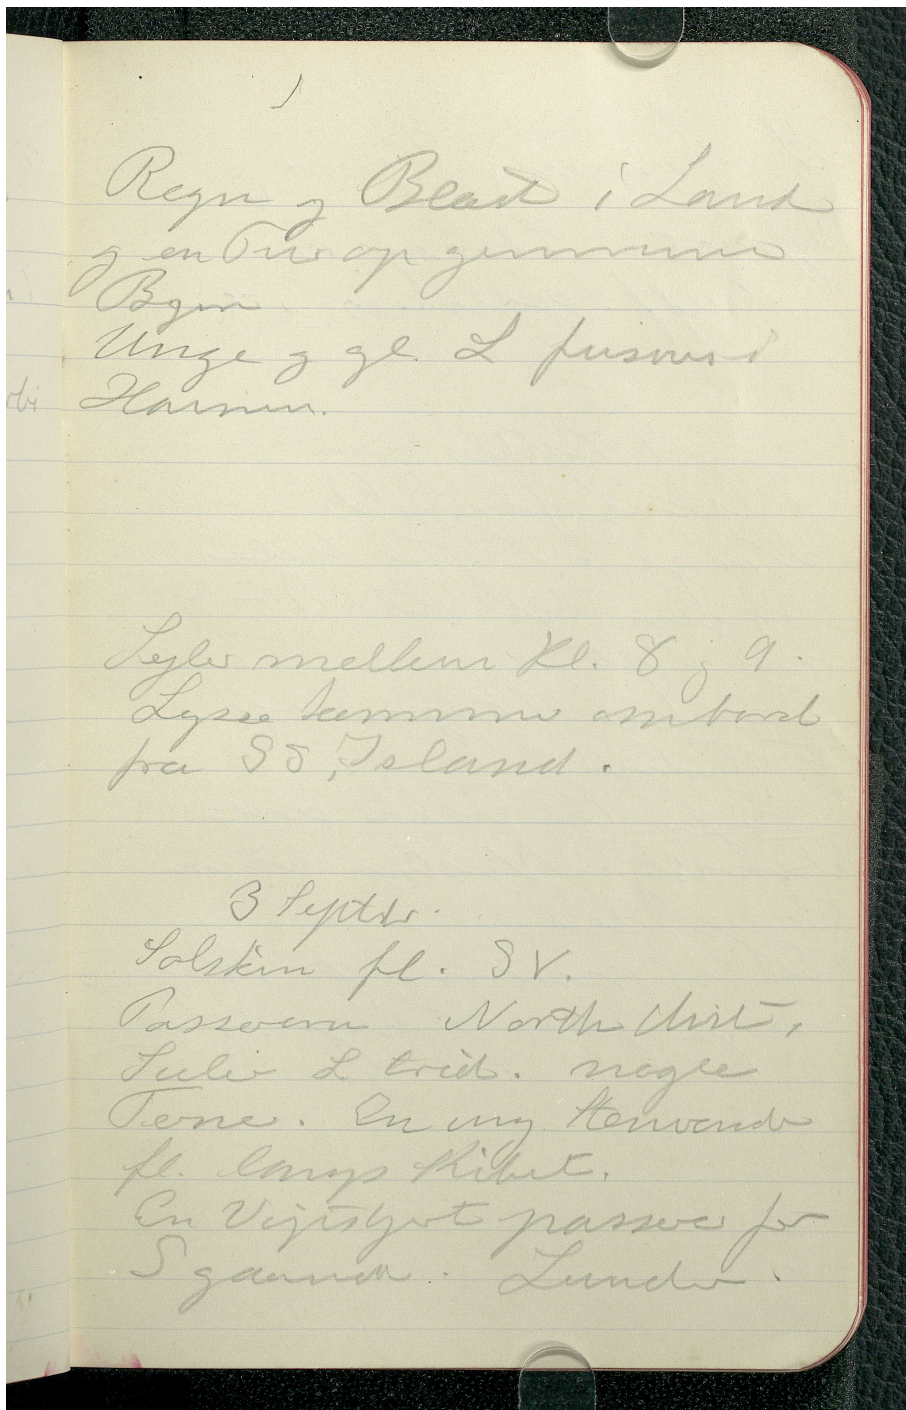 Regn og Blæst i Land
og en Tur op gennem
Byen
Unge og gl. L fuscus i
Havnen.
Sejler mellem Kl. 8 og 9.
Lysee kommer ombord
fra SS, Island.
3 Septbr.
Solskin fl. SV.
Passerer North Uist,
Suler L trid. nogle
Terner. En ung
fl. langs Skibet.
En Vipstjert passerer for
S gaaende. Lunder.